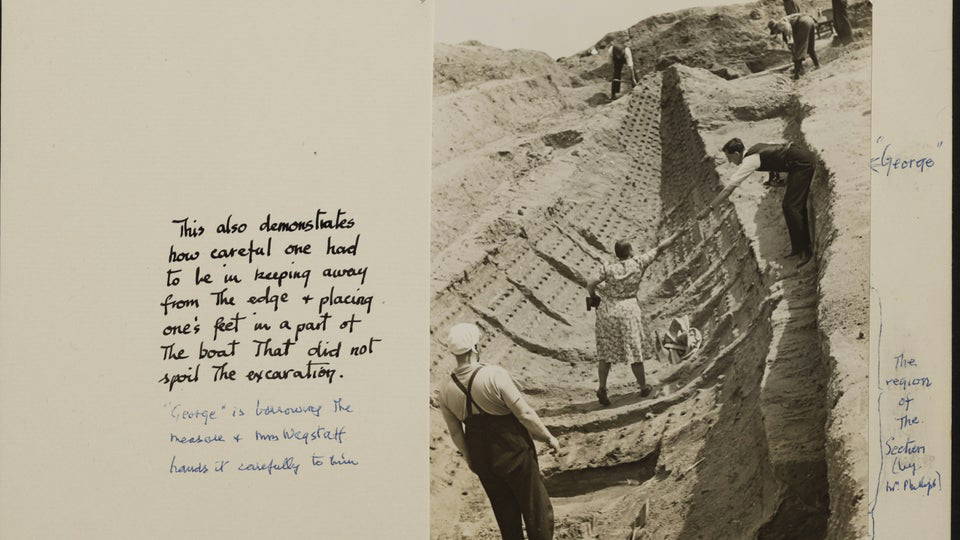 This also demonstrates
how careful one had
to be in keeping away
from The edge + placing
one's feet in a part of
The boat That did not
spoil The excavation.
"George" is borrowing The
measure + Mrs Wagstaff
hands it carefully to him
"George"
The
region
of
The
Section
(by
Mr. Phillips)